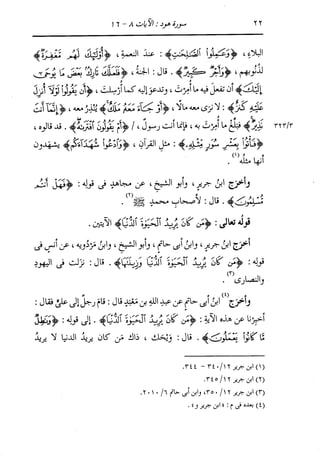 ٢٢ سورة هود : الآيات ٨ - ١٦
البلاءِ ، ﴿وَعَمِلُوا الصَّالِحَاتِ﴾ : عند النعمةِ ، ﴿أُولَئِكَ لَهُم مَّغْفِرَةٌ﴾
لذنوبهم ، ﴿وَأَجْرٌ كَبِيرٌ﴾ . قال : الجنةُ ، ﴿فَلَعَلَّكَ تَارِكٌ بَعْضَ مَا يُوحَى
إِلَيْكَ﴾ أن تفعلَ فيه ما أُمِرتَ ، وتدعوَ إليه كما أُرسلتَ ، ﴿أَن يَقُولُوا لَوْلَا أُنزِلَ
عَلَيْهِ كَنزٌ﴾ : لا نرى معه مالًا ، ﴿أَوْ جَاءَ مَعَهُ مَلَكٌ﴾ ينذرُ معه ، ﴿إِنَّمَا أَنتَ
نَذِيرٌ﴾ فبلِّغْ ما أُمِرتَ به ، فإنما أنت رسولٌ ، / ﴿أَمْ يَقُولُونَ افْتَرَاهُ﴾ . قد قالوه ، ٣٢٣/٣
﴿فَأْتُوا بِعَشْرِ سُوَرٍ مِّثْلِهِ﴾ : مثلِ القرآنِ ، ﴿وَادْعُوا شُهَدَاءَكُم﴾ يشهدون
أنها مثلُه (١) .
وأخرَج ابنُ جريرٍ ، وأبو الشيخِ ، عن مجاهدٍ في قولِه : ﴿فَهَلْ أَنتُم
مُّسْلِمُونَ﴾ . قال : لأصحابِ محمدٍ ﷺ (٢) .
قولُه تعالى : ﴿مَن كَانَ يُرِيدُ الْحَيَاةَ الدُّنْيَا﴾ الآيتين .
أخرَج ابنُ جريرٍ ، وابنُ أبي حاتمٍ ، وأبو الشيخِ ، وابنُ مَرْدُويَه ، عن أنسٍ في
قولِه : ﴿مَن كَانَ يُرِيدُ الْحَيَاةَ الدُّنْيَا وَزِينَتَهَا﴾ . قال : نزَلت في اليهودِ
والنصارى (٣) .
وأخرَج (٤) ابنُ أبي حاتمٍ عن عبدِ اللهِ بنِ معبدٍ قال : قام رجلٌ إلى عليٍّ فقال :
أخبِرْنا عن هذه الآيةِ : ﴿مَن كَانَ يُرِيدُ الْحَيَاةَ الدُّنْيَا﴾ . إلى قولِه : ﴿وَبَاطِلٌ
مَّا كَانُوا يَعْمَلُونَ﴾ . قال : ويحَك ، ذاك من كان يريدُ الدنيا لا يريدُ
(١) ابن جرير ١٢/ ٣٤٠- ٣٤٤.
(٢) ابن جرير ١٢/ ٣٤٥.
(٣) ابن جرير ١٢/ ٣٥٠، وابن أبي حاتم ٦/ ٢٠١٠.
(٤) بعده فى م : « ابن جرير و » .